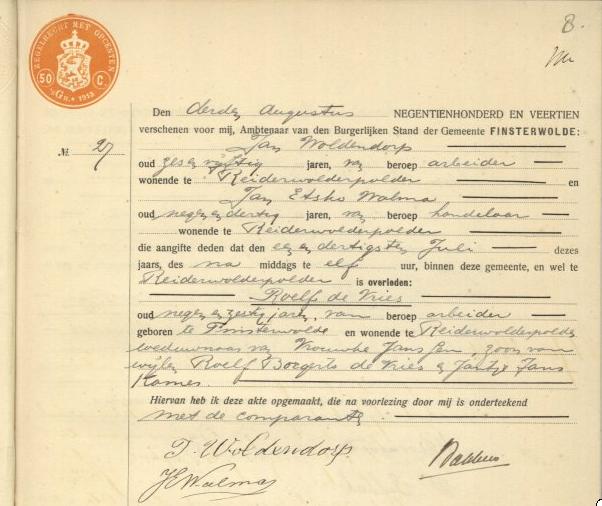 8.
ZEGELRECHT MET OPCENTEN
50 C.
1913
Den derden Augustus NEGENTIENHONDERD EN VEERTIEN
verschenen voor mij, Ambtenaar van den Burgerlijken Stand der Gemeente FINSTERWOLDE:
№ 27
Jan Woldendorp
oud zes en vijftig jaren, van beroep arbeider
wonende te Reiderwolderpolder en
Jan Etsko Walma
oud negen en dertig jaren, van beroep handelaar
wonende te Reiderwolderpolder
die aangifte deden dat den een en dertigsten Juli dezes
jaars, des na middags te elf uur, binnen deze gemeente, en wel te
Reiderwolderpolder is overleden:
Roelf de Vries
oud negen en zestig jaren, van beroep arbeider
geboren te Finsterwolde en wonende te Reiderwolderpolder
weduwnaar van Vrouwke Jans zoon van
wijlen Roelf Boegerts de Vries en Jantje Jans
Kames.
Hiervan heb ik deze akte opgemaakt, die na voorlezing door mij is onderteekend
met de comparanten
J. Woldendorp.
JEWalma